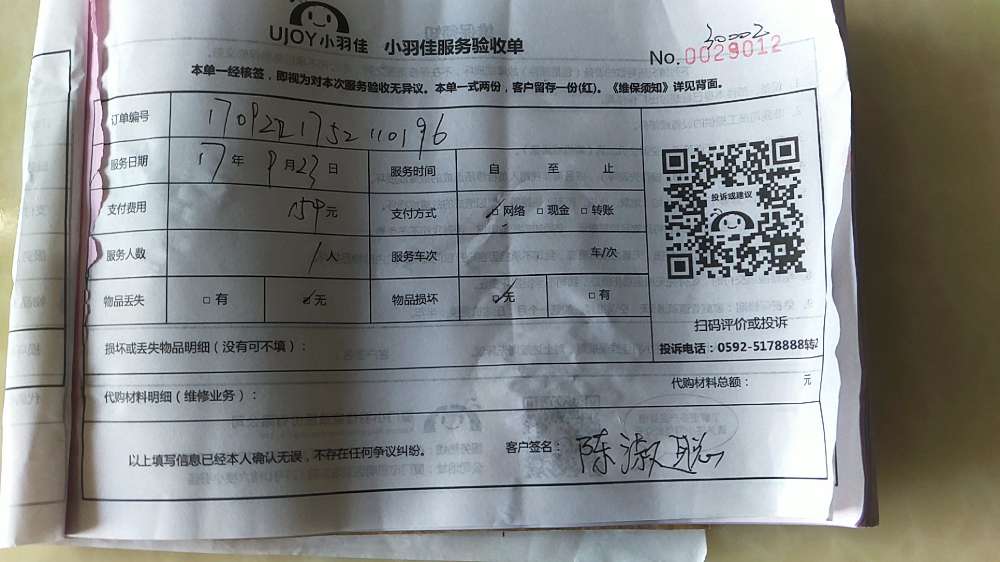 UJOY小羽佳 小羽佳服务验收单
30002
No. 0029012
本单一经核签，即视为对本次服务验收无异议。本单一式两份，客户留存一份(红)。《维保须知》详见背面。
订单编号
服务日期 17 年 9 月 23 日 服务时间 自 至 止
投诉或建议
支付费用 154 元 支付方式 ☑网络 □现金 □转账
服务人数 1 人 服务车次 车/次
物品丢失 □有 ☑无 物品损坏 ☑无 □有
扫码评价或投诉
损坏或丢失物品明细（没有可不填）： 投诉电话：0592-5178888转
代购材料明细（维修业务）： 代购材料总额： 元
以上填写信息已经本人确认无误，不存在任何争议纠纷。 客户签名：陈淑聪